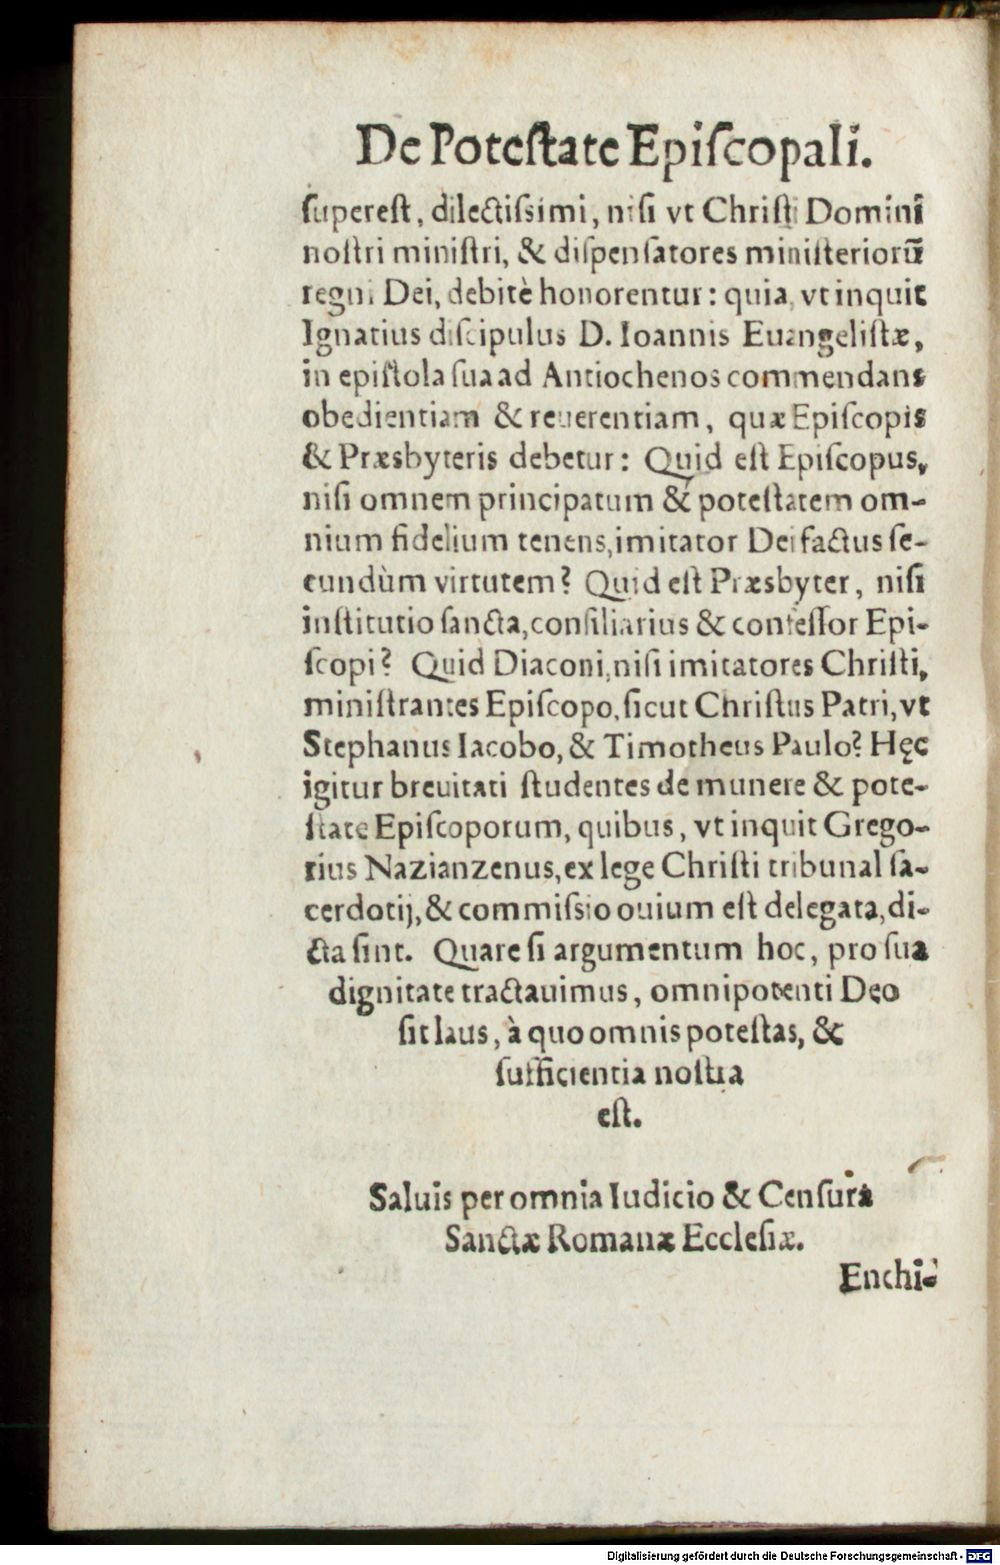 De Poteſtate Epiſcopali.
ſupereſt, dilectiſsimi, niſi vt Chriſti Domini
noſtri miniſtri, & diſpenſatores miniſteriorū
regni Dei, debitè honorentur: quia, vt inquit
Ignatius diſcipulus D. Ioannis Euangeliſtæ,
in epiſtola ſua ad Antiochenos commendans
obedientiam & reuerentiam, quæ Epiſcopis
& Præsbyteris debetur: Quid eſt Epiſcopus,
niſi omnem principatum & poteſtatem om-
nium fidelium tenens, imitator Dei factus ſe-
cundùm virtutem? Quid eſt Præsbyter, niſi
inſtitutio ſancta, conſiliarius & conſeſſor Epi-
ſcopi? Quid Diaconi, niſi imitatores Chriſti,
miniſtrantes Epiſcopo, ſicut Chriſtus Patri, vt
Stephanus Iacobo, & Timotheus Paulo? Hęc
igitur breuitati ſtudentes de munere & pote-
ſtate Epiſcoporum, quibus, vt inquit Grego-
rius Nazianzenus, ex lege Chriſti tribunal ſa-
cerdotij, & commiſsio ouium eſt delegata, di-
cta ſint. Quare ſi argumentum hoc, pro ſua
dignitate tractauimus, omnipotenti Deo
ſit laus, à quo omnis poteſtas, &
ſufficientia noſtra
eſt.
Saluis per omnia Iudicio & Cenſura
Sanctæ Romanæ Eccleſiæ.
Enchi-
Digitalisierung gefördert durch die Deutsche Forschungsgemeinschaft - DFG